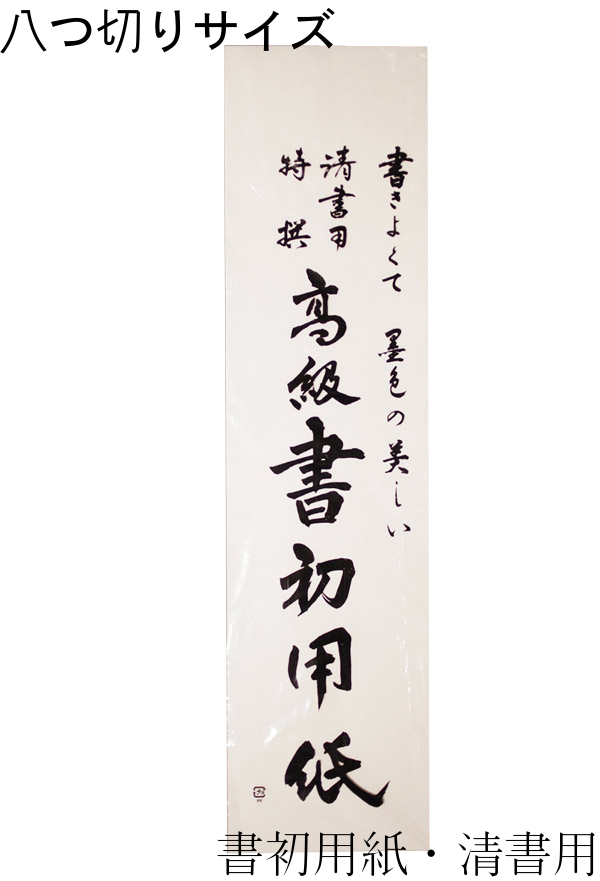 八つ切りサイズ
書きよくて 墨色の美しい
清書用
特撰
高級書初用紙
書初用紙・清書用